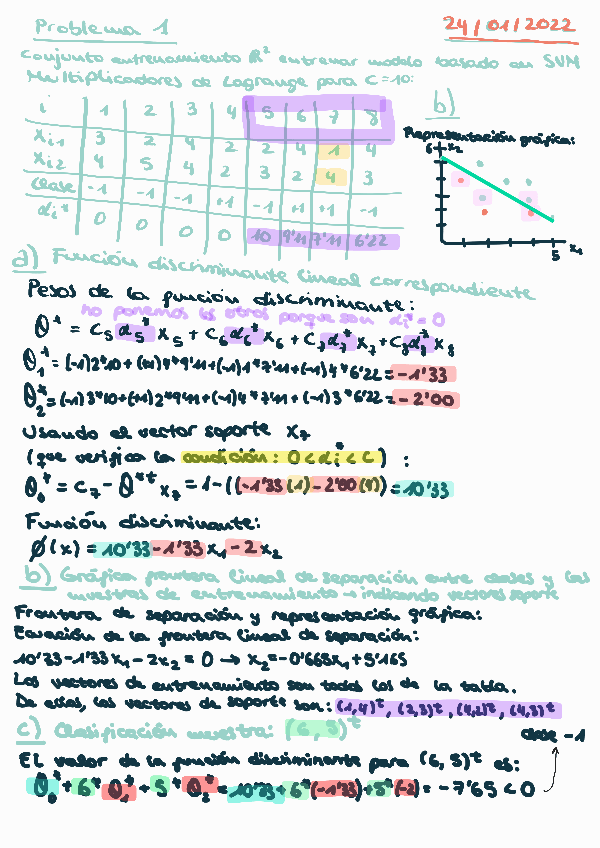 Problema 1
24/01/2022
Conjunto entrenamiento R² entrenar modelo basado en SVM
Multiplicadores de Lagrange para C=10:
i 1 2 3 4 5 6 7 8
xi1 3 2 4 2 2 4 1 4
xi2 4 5 4 2 3 2 4 3
clase -1 -1 -1 +1 -1 +1 +1 -1
αi* 0 0 0 0 10 9'11 7'11 6'22
b)
Representación gráfica:
6 x2
5 x1
a) Función discriminante lineal correspondiente
Pesos de la función discriminante:
no ponemos los otros porque son αi* = 0
θ* = C5 α5* x5 + C6 α6* x6 + C7 α7* x7 + C8 α8* x8
θ1* = (-1)2*10+(+1)4*9'11+(+1)1*7'11+(-1)4*6'22 = -1'33
θ2* = (-1)3*10+(+1)2*9'11+(-1)4*7'11+(-1)3*6'22 = -2'00
Usando el vector soporte x7
(que verifica la condición: 0 < αi* < C) :
θ0* = C7 - θ*t x7 = 1-((-1'33(1)-2'00(4)) = 10'33
Función discriminante:
Ø(x) = 10'33-1'33x1-2x2
b) Gráfica frontera lineal de separación entre clases y las
muestras de entrenamiento → indicando vectores soporte
Frontera de separación y representación gráfica:
Ecuación de la frontera lineal de separación:
10'33-1'33x1-2x2 = 0 → x2=-0'665x1+5'165
Los vectores de entrenamiento son todos los de la tabla.
De ellos, los vectores de soporte son: (1,4)t, (2,3)t, (4,2)t, (4,3)t
c) Clasificación muestra: (6,5)t
clase -1
El valor de la función discriminante para (6,5)t es:
θ0* + 6* θ1* + 5* θ2* = 10'33+6*(-1'33)+5*(-2) = -7'65 < 0